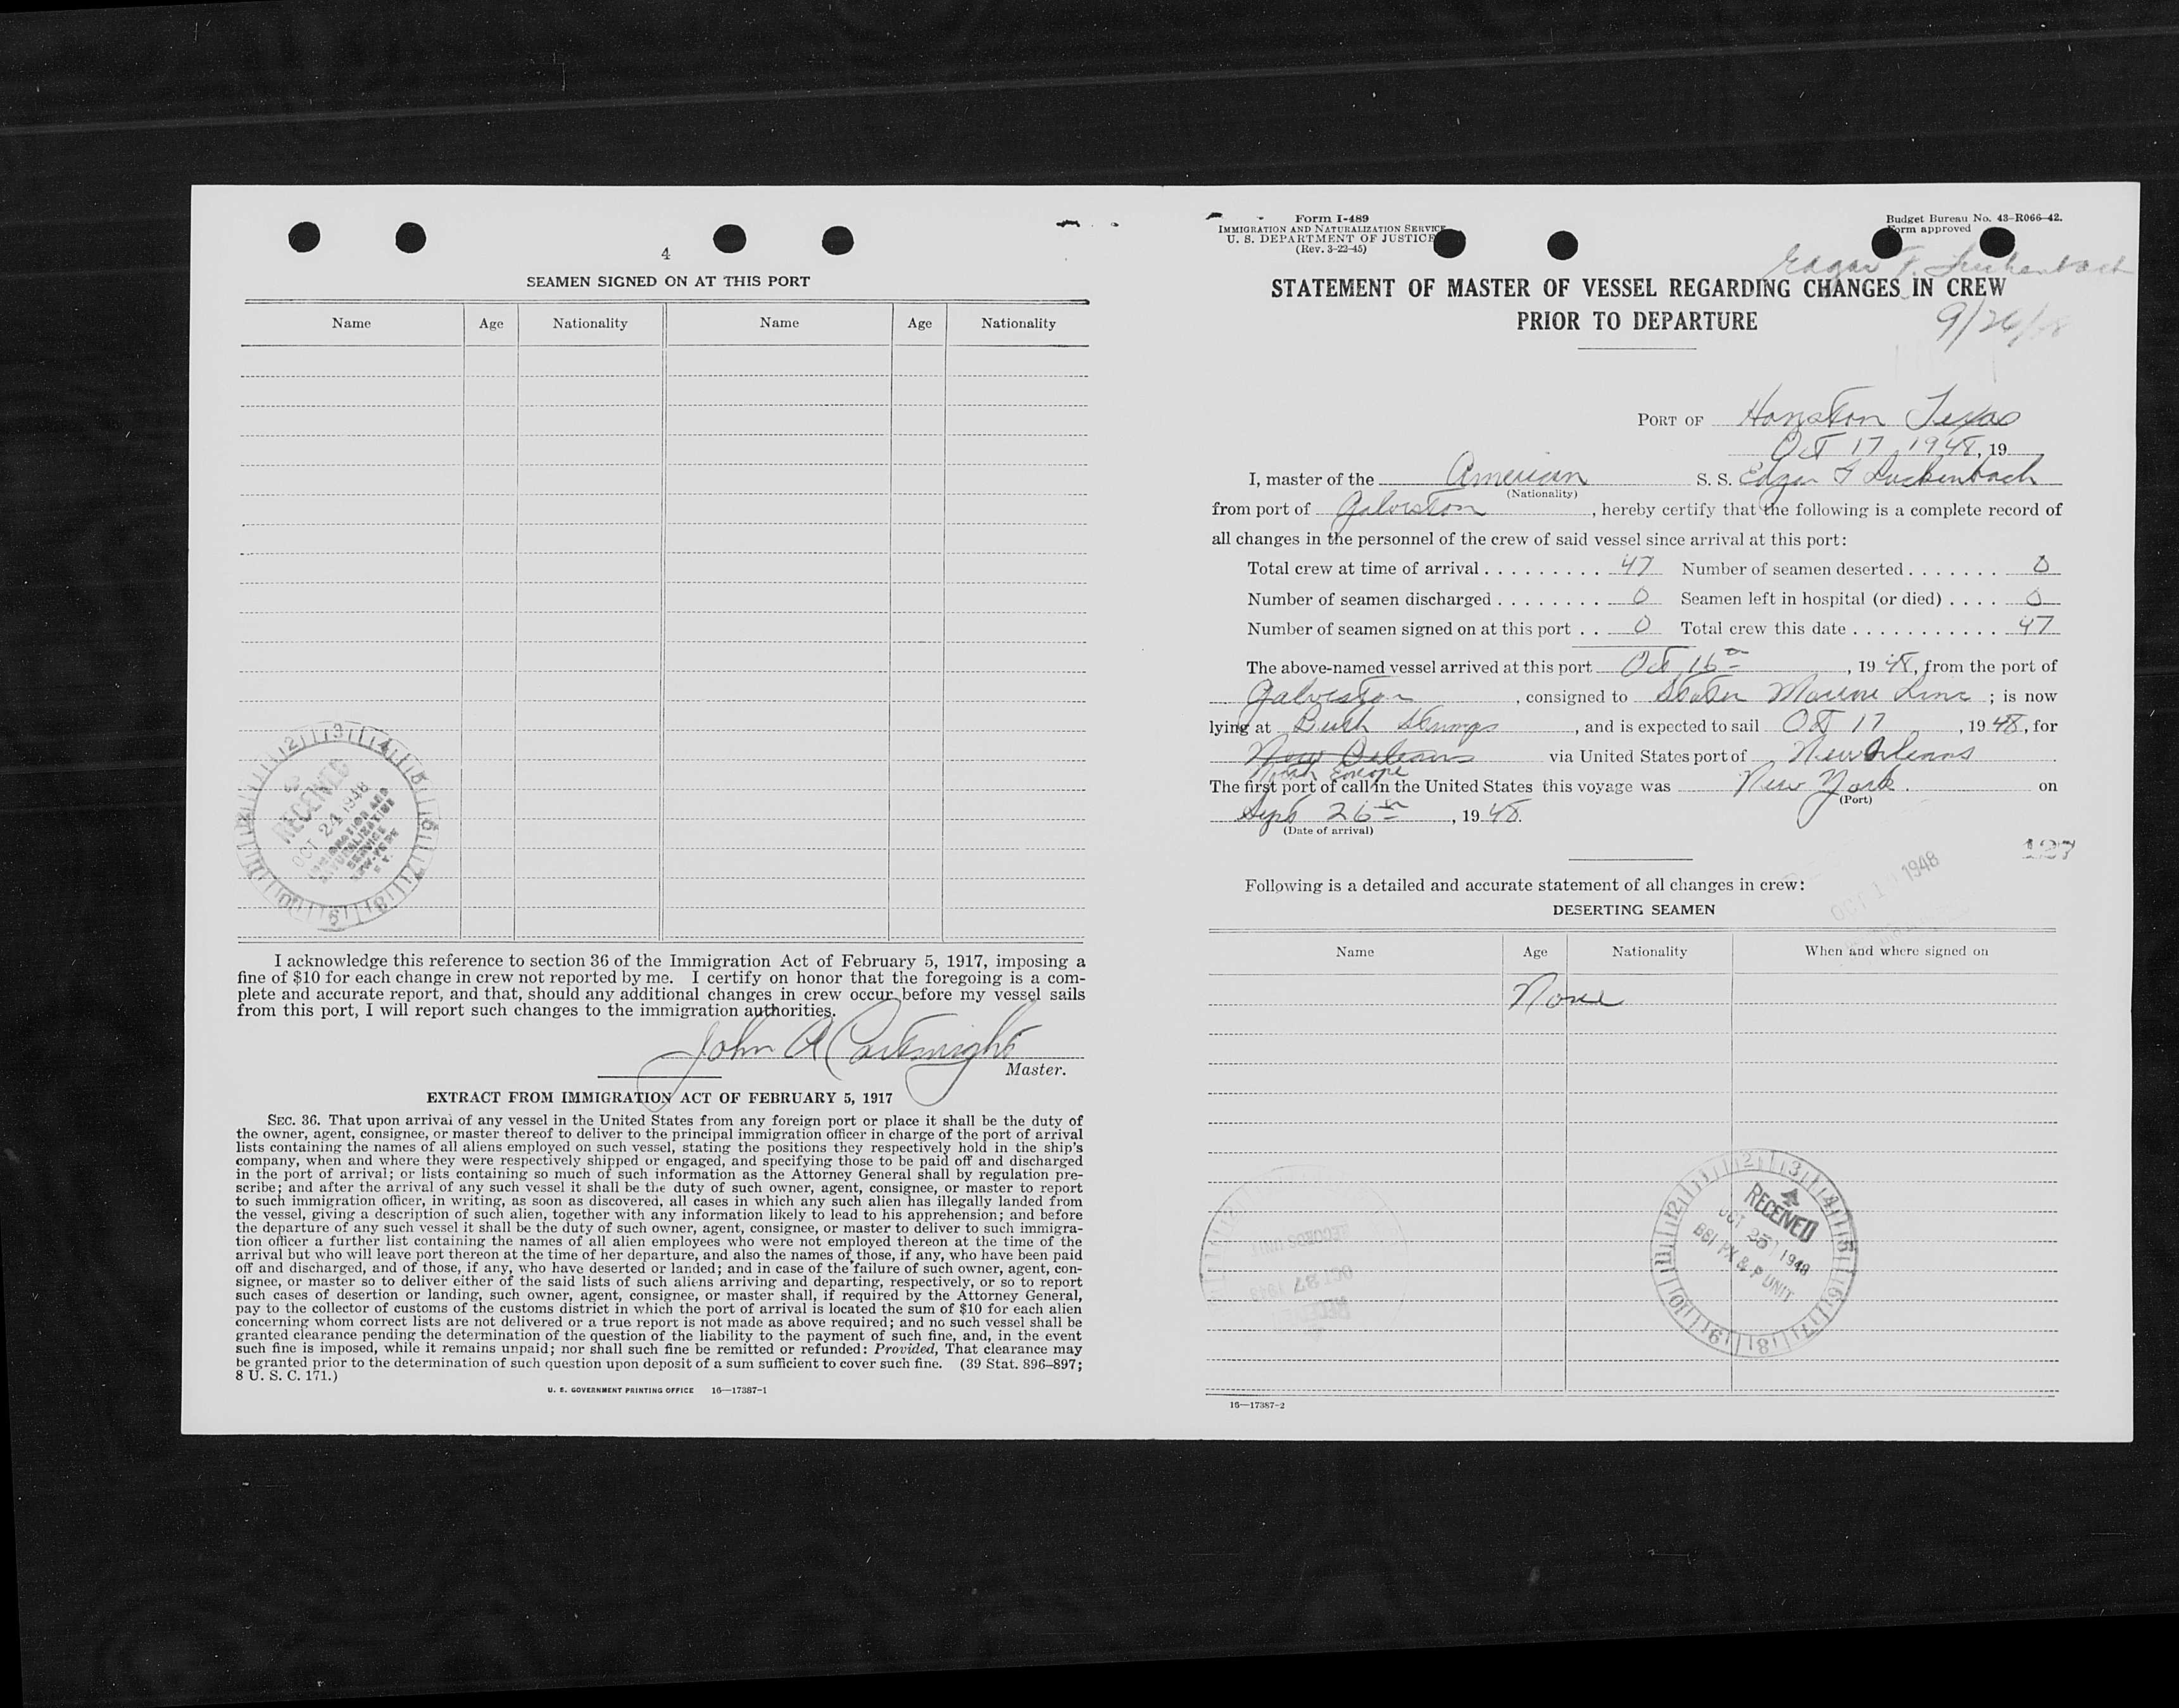 4
SEAMEN SIGNED ON AT THIS PORT
Name Age Nationality Name Age Nationality
RECEIVED
OCT 24 1948
IMMIGRATION AND
NATURALIZATION
SERVICE
NEW YORK
N. Y.
I acknowledge this reference to section 36 of the Immigration Act of February 5, 1917, imposing a
fine of $10 for each change in crew not reported by me. I certify on honor that the foregoing is a com-
plete and accurate report, and that, should any additional changes in crew occur before my vessel sails
from this port, I will report such changes to the immigration authorities.
John A Cartwright
Master.
EXTRACT FROM IMMIGRATION ACT OF FEBRUARY 5, 1917
SEC. 36. That upon arrival of any vessel in the United States from any foreign port or place it shall be the duty of
the owner, agent, consignee, or master thereof to deliver to the principal immigration officer in charge of the port of arrival
lists containing the names of all aliens employed on such vessel, stating the positions they respectively hold in the ship's
company, when and where they were respectively shipped or engaged, and specifying those to be paid off and discharged
in the port of arrival; or lists containing so much of such information as the Attorney General shall by regulation pre-
scribe; and after the arrival of any such vessel it shall be the duty of such owner, agent, consignee, or master to report
to such immigration officer, in writing, as soon as discovered, all cases in which any such alien has illegally landed from
the vessel, giving a description of such alien, together with any information likely to lead to his apprehension; and before
the departure of any such vessel it shall be the duty of such owner, agent, consignee, or master to deliver to such immigra-
tion officer a further list containing the names of all alien employees who were not employed thereon at the time of the
arrival but who will leave port thereon at the time of her departure, and also the names of those, if any, who have been paid
off and discharged, and of those, if any, who have deserted or landed; and in case of the failure of such owner, agent, con-
signee, or master so to deliver either of the said lists of such aliens arriving and departing, respectively, or so to report
such cases of desertion or landing, such owner, agent, consignee, or master shall, if required by the Attorney General,
pay to the collector of customs of the customs district in which the port of arrival is located the sum of $10 for each alien
concerning whom correct lists are not delivered or a true report is not made as above required; and no such vessel shall be
granted clearance pending the determination of the question of the liability to the payment of such fine, and, in the event
such fine is imposed, while it remains unpaid; nor shall such fine be remitted or refunded: Provided, That clearance may
be granted prior to the determination of such question upon deposit of a sum sufficient to cover such fine. (39 Stat. 896–897;
8 U. S. C. 171.)
U. S. GOVERNMENT PRINTING OFFICE 16—17387-1
Form I-489
IMMIGRATION AND NATURALIZATION SERVICE
U. S. DEPARTMENT OF JUSTICE
(Rev. 3-22-45)
Budget Bureau No. 43-R066-42.
Form approved
Edgar F. Luckenbach
STATEMENT OF MASTER OF VESSEL REGARDING CHANGES IN CREW
PRIOR TO DEPARTURE
9/26/48
PORT OF Houston Texas
Oct 17, 1948, 19
I, master of the American S. S. Edgar F Luckenbach
(Nationality)
from port of Galveston, hereby certify that the following is a complete record of
all changes in the personnel of the crew of said vessel since arrival at this port:
Total crew at time of arrival . . . . . . . . . 47 Number of seamen deserted . . . . . . . 0
Number of seamen discharged . . . . . . . . 0 Seamen left in hospital (or died) . . . . 0
Number of seamen signed on at this port . . 0 Total crew this date . . . . . . . . . . . 47
The above-named vessel arrived at this port Oct 16th, 1948, from the port of
Galveston, consigned to Marine Line; is now
lying at, and is expected to sail Oct 17, 1948, for
New Orleans via United States port of New Orleans
North Europe
The first port of call in the United States this voyage was New York. on
(Port)
Sept 26th, 1948.
(Date of arrival)
127
1948
Following is a detailed and accurate statement of all changes in crew:
DESERTING SEAMEN
Name Age Nationality When and where signed on
None
RECEIVED
OCT 25 1948
BSI PX & P UNIT
RECORDS UNIT
OCT 27 1948
16—17387-2